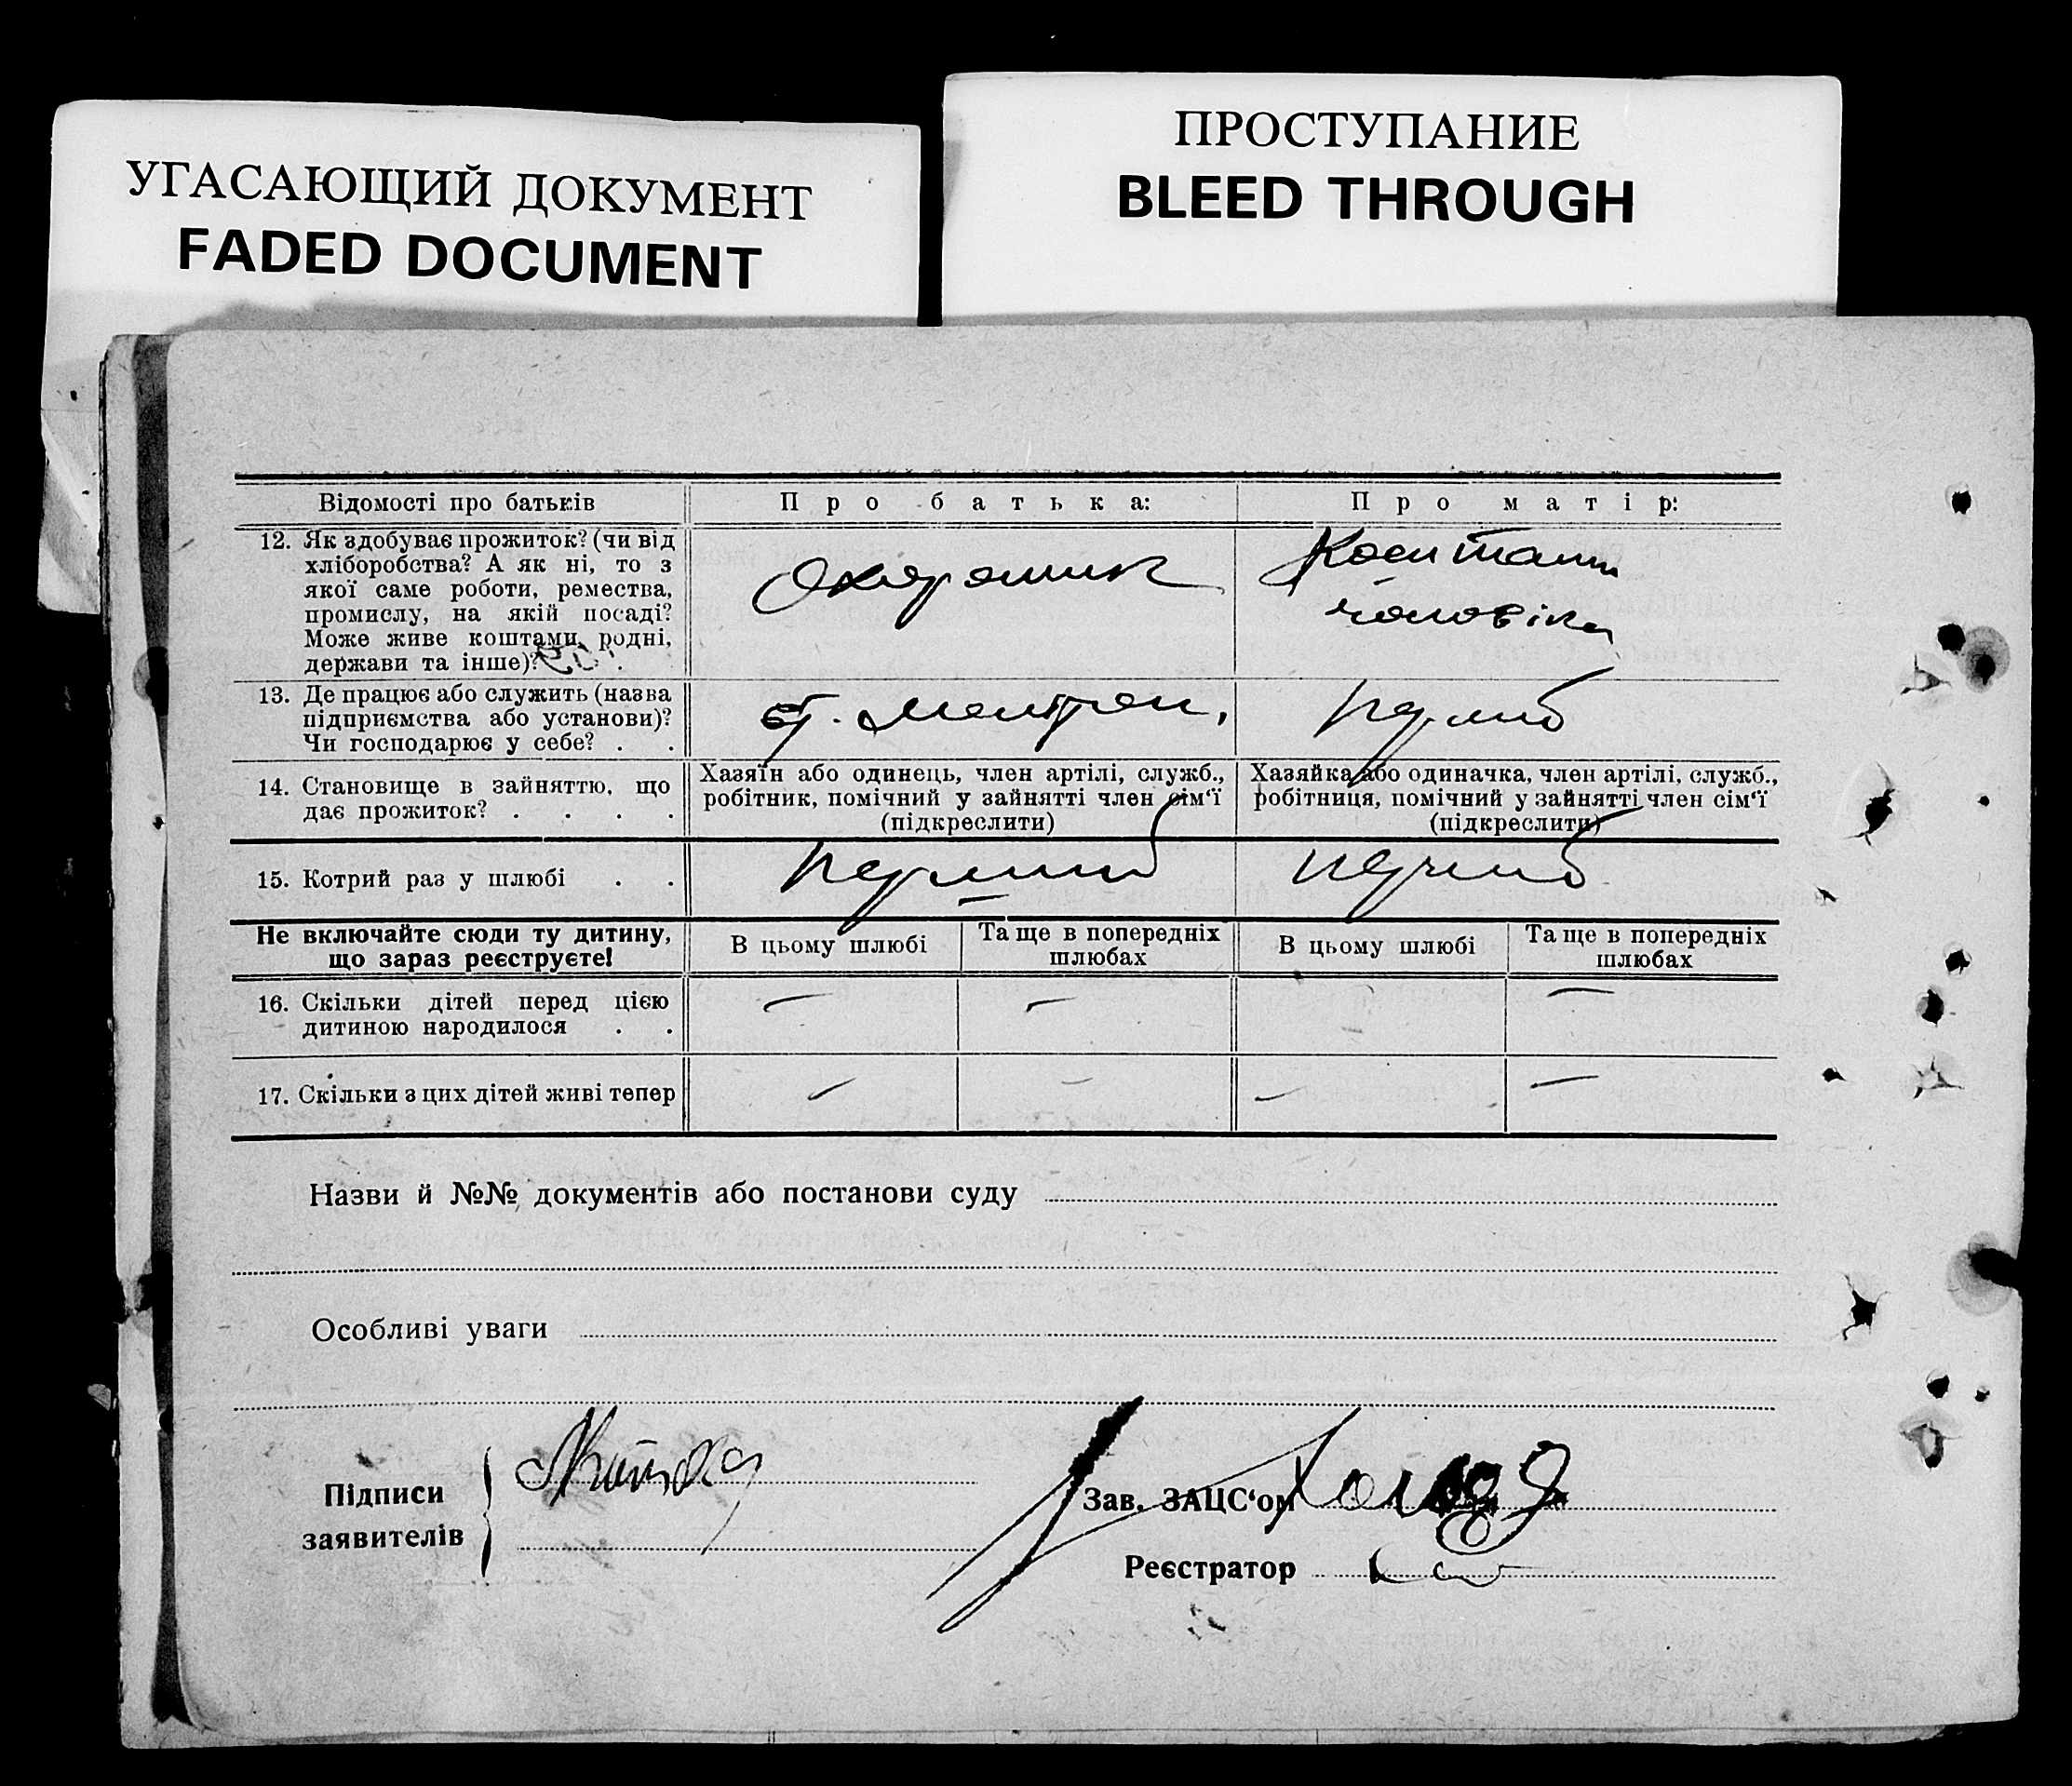 УГАСАЮЩИЙ ДОКУМЕНТ
FADED DOCUMENT
ПРОСТУПАНИЕ
BLEED THROUGH
Відомості про батьків
Про батька:
Про матір:
12. Як здобуває прожиток? (чи від
хліборобства? А як ні, то з
якої саме роботи, ремества,
промислу, на якій посаді?
Може живе коштами родні,
держави та інше)? .
Охоронник
Коштами
чоловіка
13. Де працює або служить (назва
підприємства або установи)?
Чи господарює у себе? . .
ст.
перший
14. Становище в зайняттю, що
дає прожиток? . . . .
Хазяїн або одинець, член артілі, служб.,
робітник, помічний у зайнятті член сім‘ї
(підкреслити)
Хазяйка або одиначка, член артілі, служб.,
робітниця, помічний у зайнятті член сім‘ї
(підкреслити)
15. Котрий раз у шлюбі . .
перший
перший
Не включайте сюди ту дитину,
що зараз реєструєте!
В цьому шлюбі
Та ще в попередніх
шлюбах
В цьому шлюбі
Та ще в попередніх
шлюбах
16. Скільки дітей перед цією
дитиною народилося . .
— — —
17. Скільки з цих дітей живі тепер
— — — —
Назви й №№ документів або постанови суду
Особливі уваги
Підписи
заявителів
Зав. ЗАЦС‘ом
Реєстратор